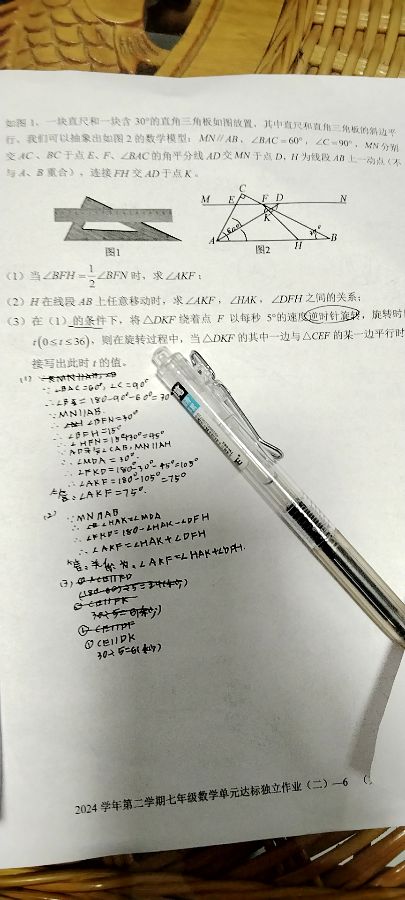 如图1、一块直尺和一块含30°的直角三角板如图放置、其中直尺和直角三角板的斜边平
行、我们可以抽象出如图2的数学模型：MN∥AB、∠BAC=60°，∠C=90°，MN分别
交AC、BC于点E、F、∠BAC的角平分线AD交MN于点D，H为线段AB上一动点（不
与A、B重合），连接FH交AD于点K。
C
M E F D N
K
60°
A H B
图1 图2
（1）当∠BFH=1/2∠BFN时，求∠AKF；
（2）H在线段AB上任意移动时，求∠AKF，∠HAK，∠DFH之间的关系；
（3）在（1）的条件下，将△DKF绕着点F以每秒5°的速度逆时针旋转，旋转时
t(0≤t≤36)，则在旋转过程中，当△DKF的其中一边与△CEF的某一边平行时
接写出此时t的值。
(1)
∵∠BAC=60°，∠C=90°
∴∠B=180-90-60=30°
∵MN∥AB
∴∠BFN=30°
∴∠BFH=15°
∴∠MDA=30°
∴∠FKD=180°-30°-45°=105°
∴∠AKF=180°-105°=75°
答：∠AKF=75°.
(2) ∵MN∥AB
∴∠HAK=∠MDA
∴∠FKD=180-∠HAK-∠DFH
∴∠AKF=∠HAK+∠DFH
∠AKF=∠HAK+∠DFH.
(3)
① CE∥DK
30÷5=6(秒)
2024学年第二学期七年级数学单元达标独立作业（二）—6 （